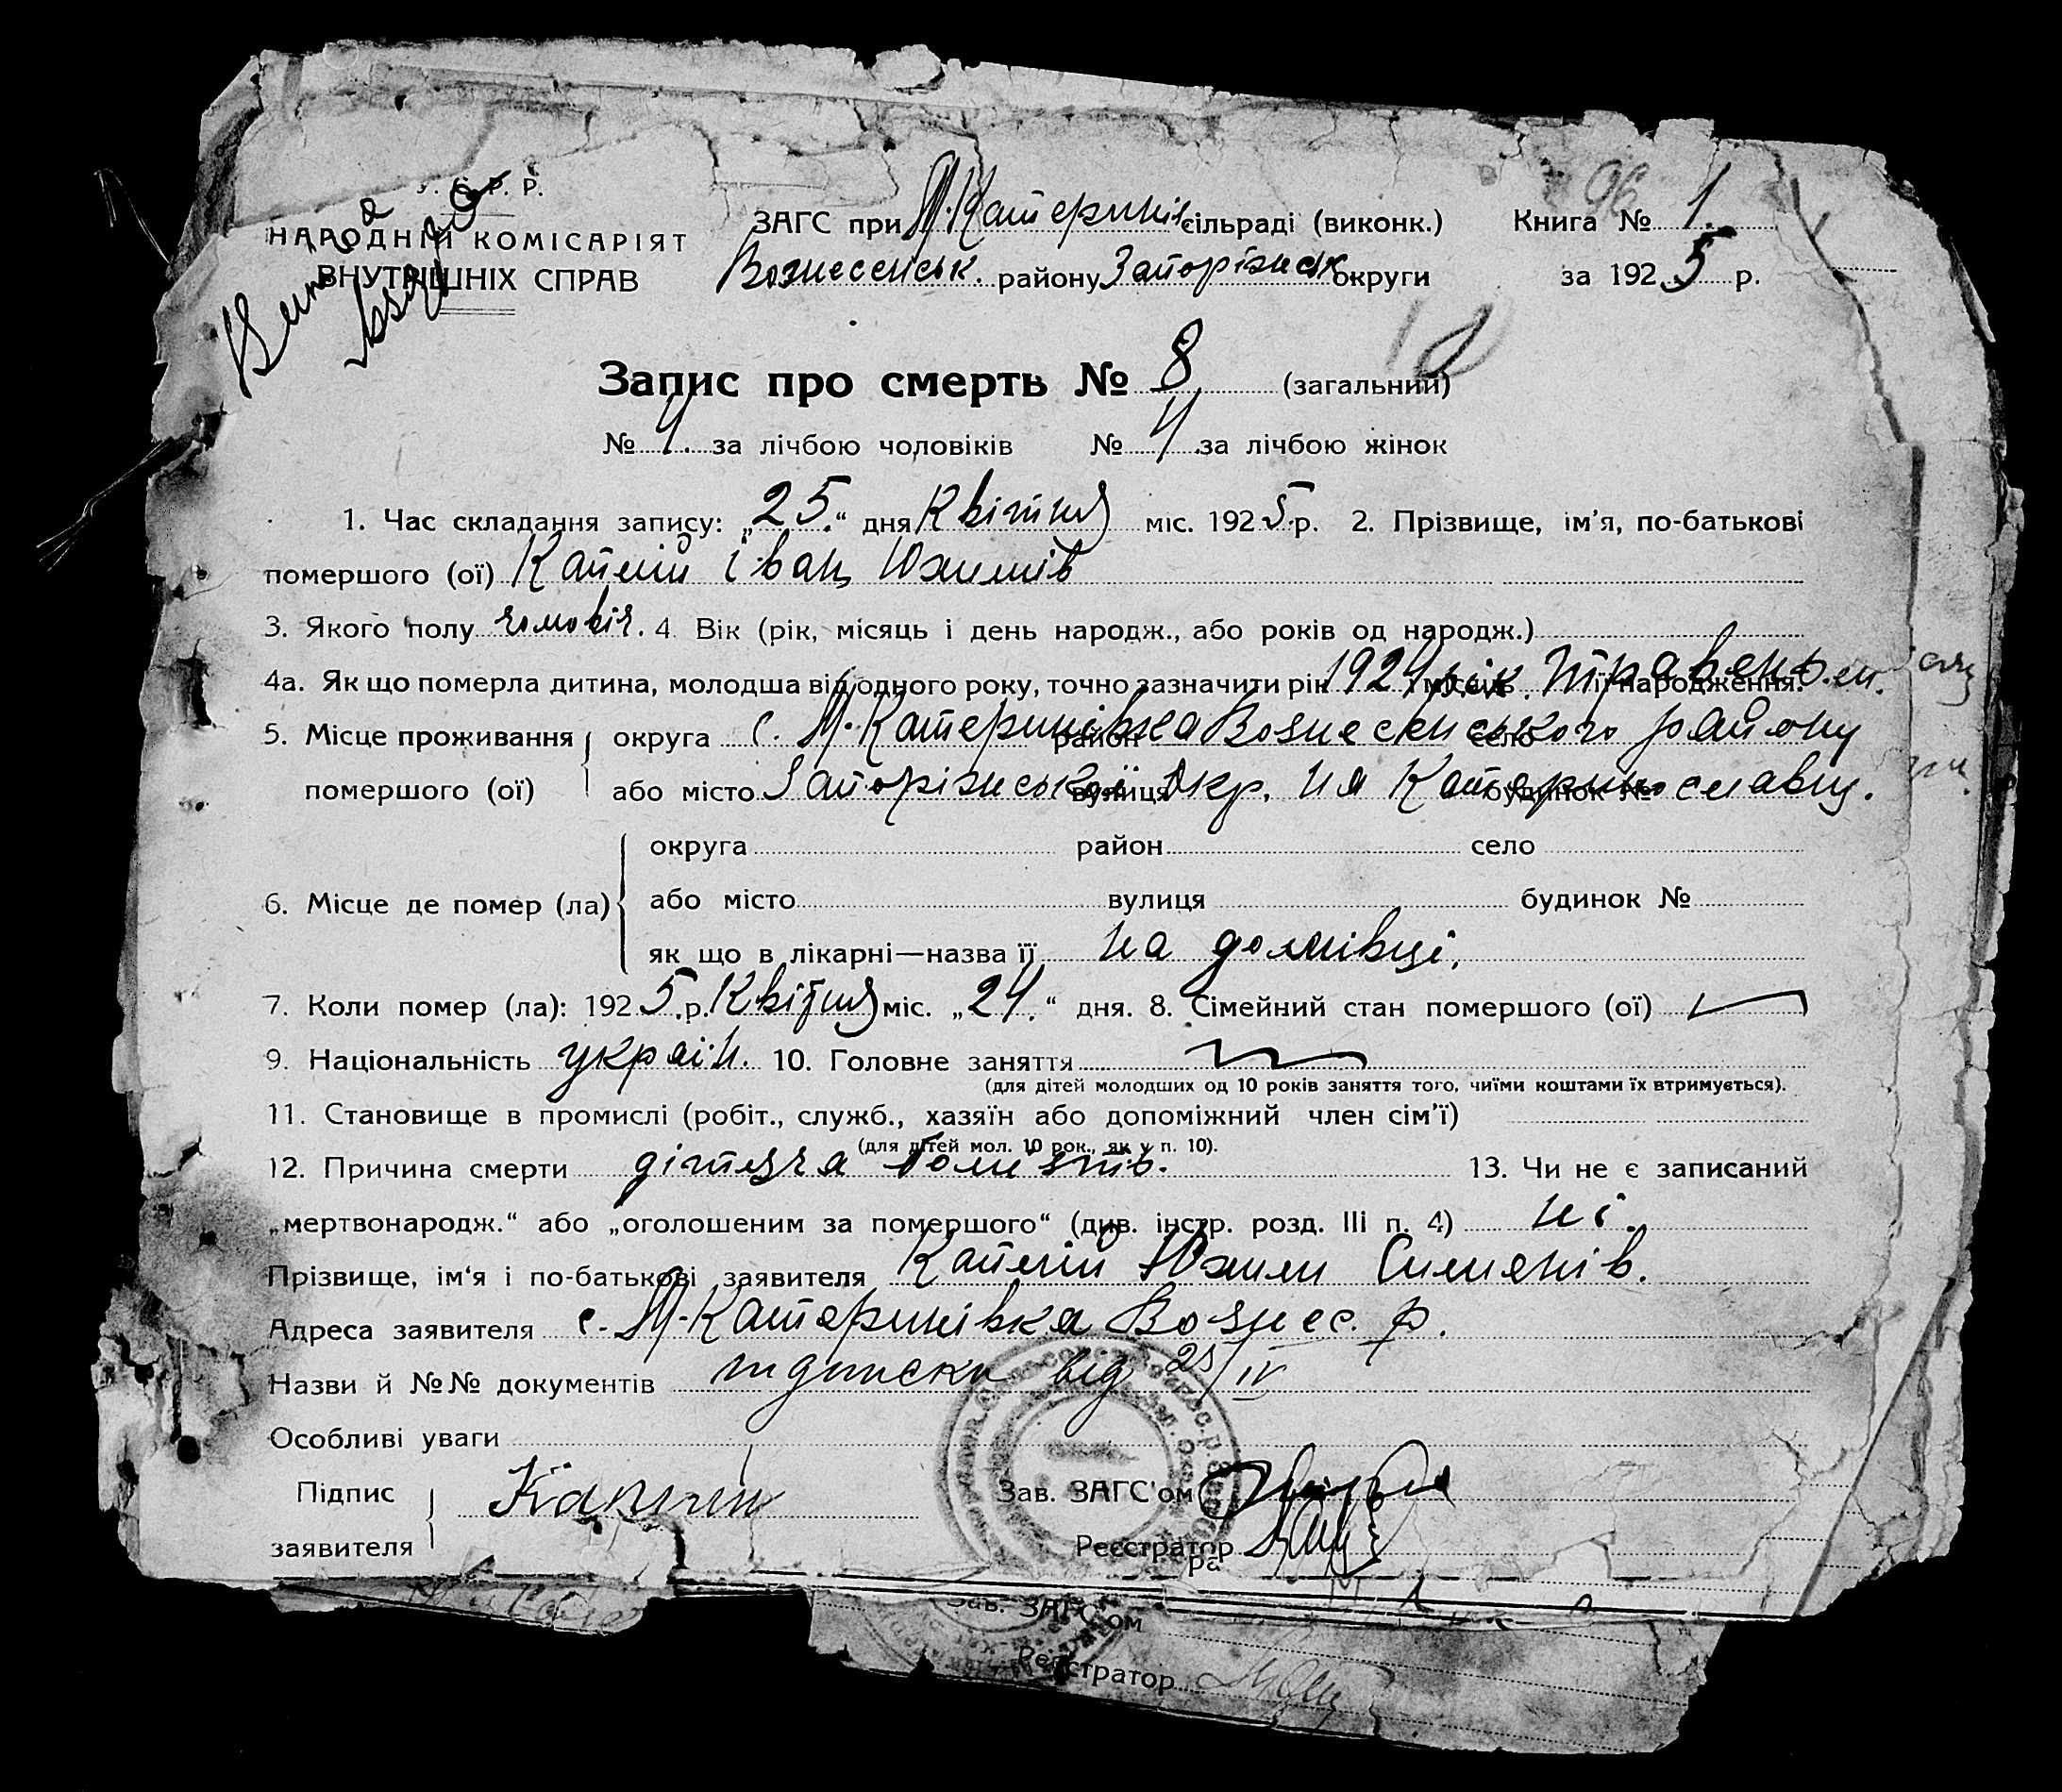 У. С. Р. Р.
НАРОДНІЙ КОМІСАРІЯТ
ВНУТРІШНІХ СПРАВ
ЗАГС при М.Катеринів сільраді (виконк.)
Вознесенськ. району Запоріжськ. округи
Книга № 1.
за 1925 р.
Запис про смерть № 8 (загальний)
№ 4. за лічбою чоловіків № 4. за лічбою жінок
1. Час складання запису: „25.“ дня Квітня міс. 1925 р. 2. Прізвище, ім'я, по-батькові
помершого (ої) Капній Іван Юхимів
3. Якого полу чоловіч. 4. Вік (рік, місяць і день народж., або років од народж.)
4а. Як що померла дитина, молодша від одного року, точно зазначити рік 1924 рік місяць Травень м. її народження.
5. Місце проживання помершого (ої) округа с. М.Катеринівка район Вознесенського село району
або місто Запоріжської вулиця Окр. на Катеринославщ. будинок №
6. Місце де помер (ла) округа район село
або місто вулиця будинок №
як що в лікарні—назва її на домівці.
7. Коли помер (ла): 1925 р. Квітня міс. „24.“ дня. 8. Сімейний стан помершого (ої)
9. Національність україн. 10. Головне заняття
(для дітей молодших од 10 років заняття того, чиїми коштами їх втримується).
11. Становище в промислі (робіт., служб., хазяїн або допоміжний член сім'ї)
(для дітей мол. 10 рок., як у п. 10).
12. Причина смерти дітяча болизнів. 13. Чи не є записаний
„мертвонародж.“ або „оголошеним за помершого“ (див. інстр. розд. III п. 4) ні.
Прізвище, ім'я і по-батькові заявителя Капній Юхим Сименів.
Адреса заявителя с. М.Катеринівка Вознес. р.
Назви й №№ документів від 25/IV
Особливі уваги
Підпис заявителя
Зав. ЗАГС'ом
Реєстратор
Зав. ЗАГС'ом
Реєстратор